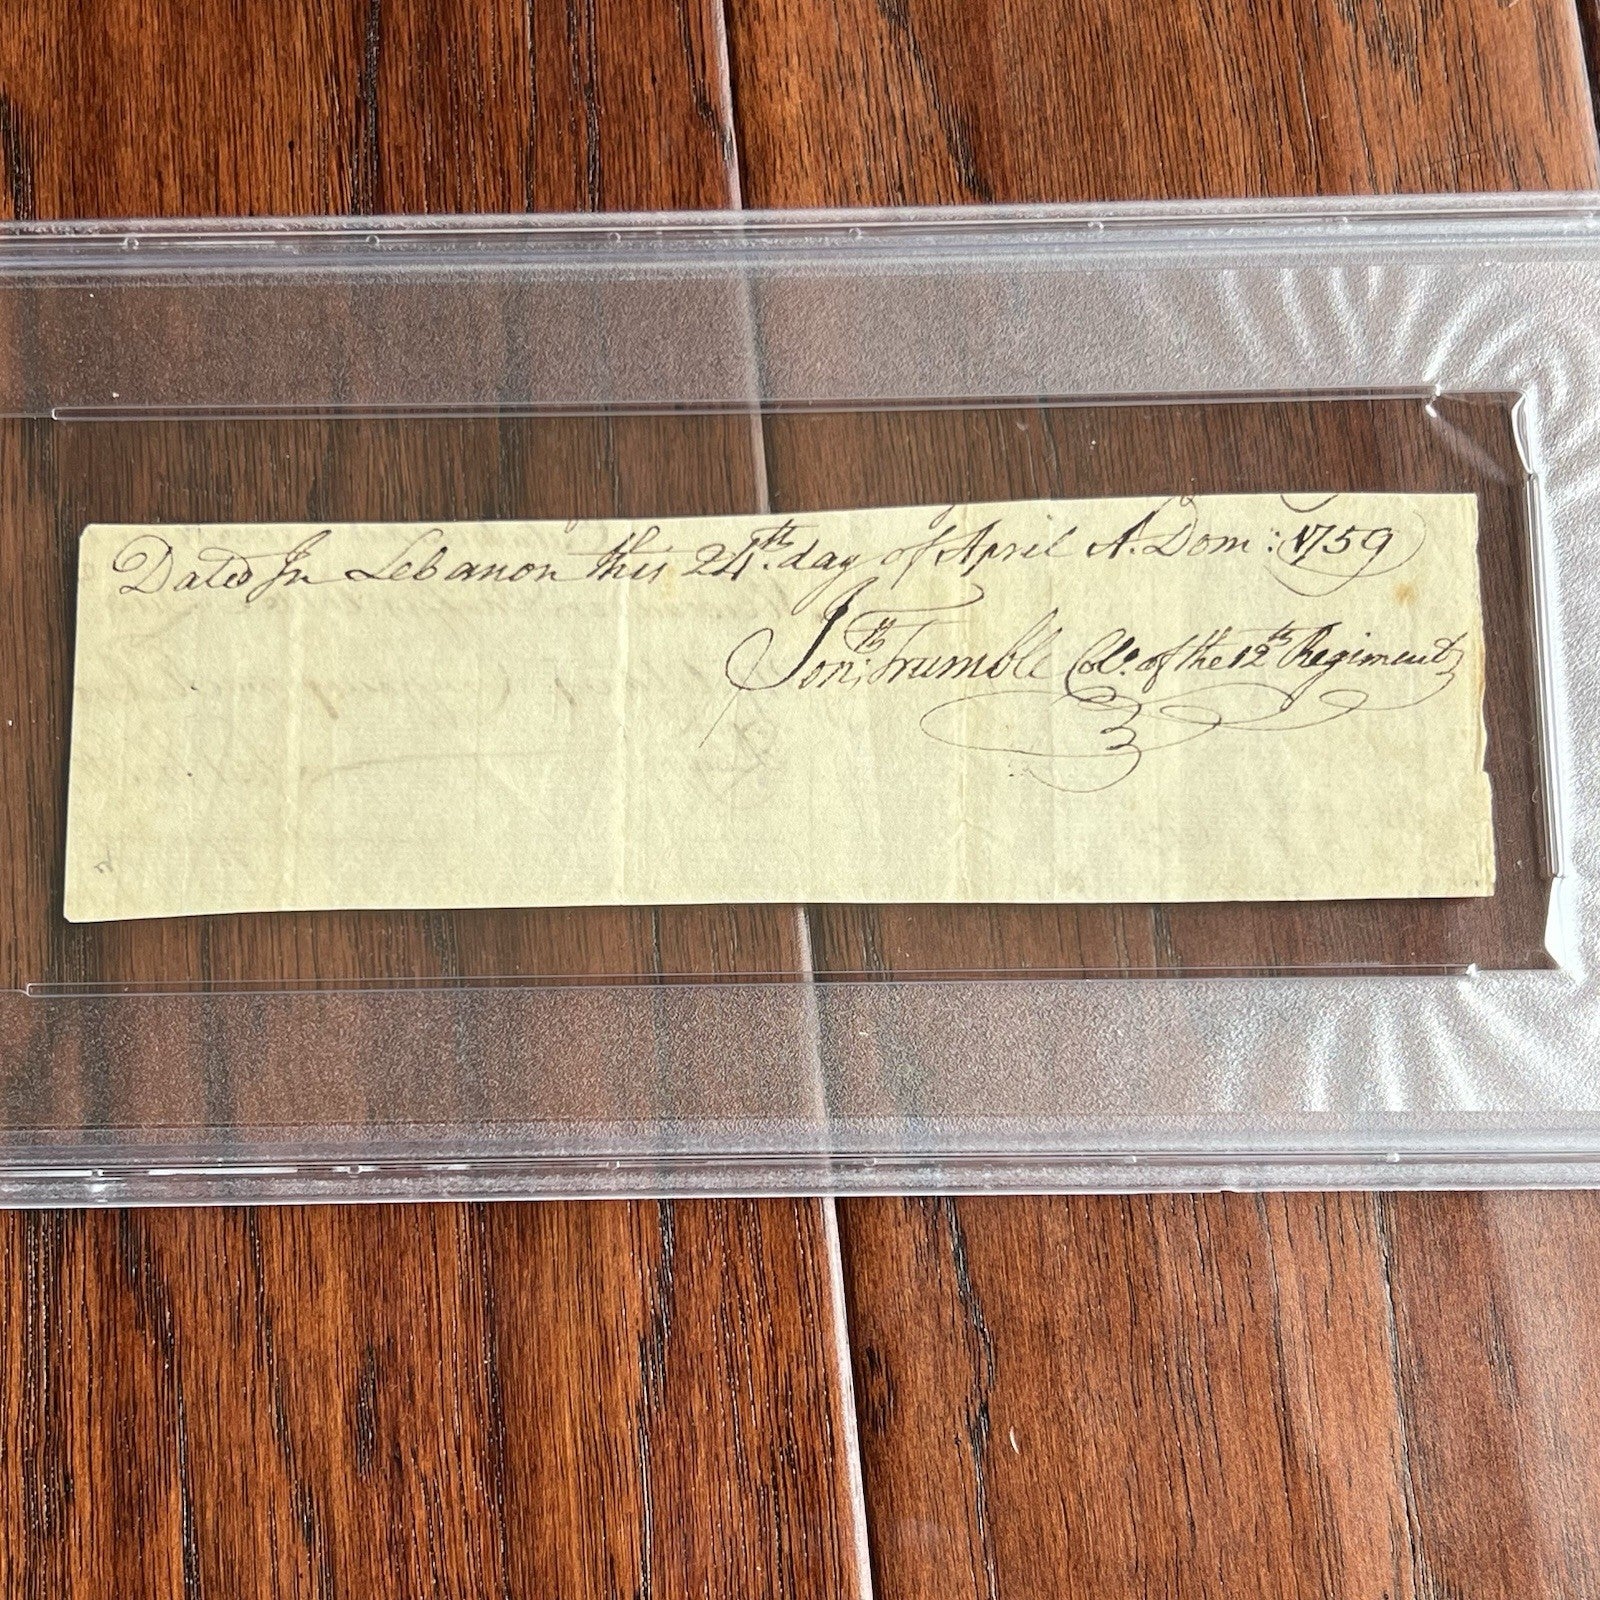 Dated In Lebanon this 24th. day of April A. Dom: 1759
Jonth; Trumble Colo. of the 12th Regiment